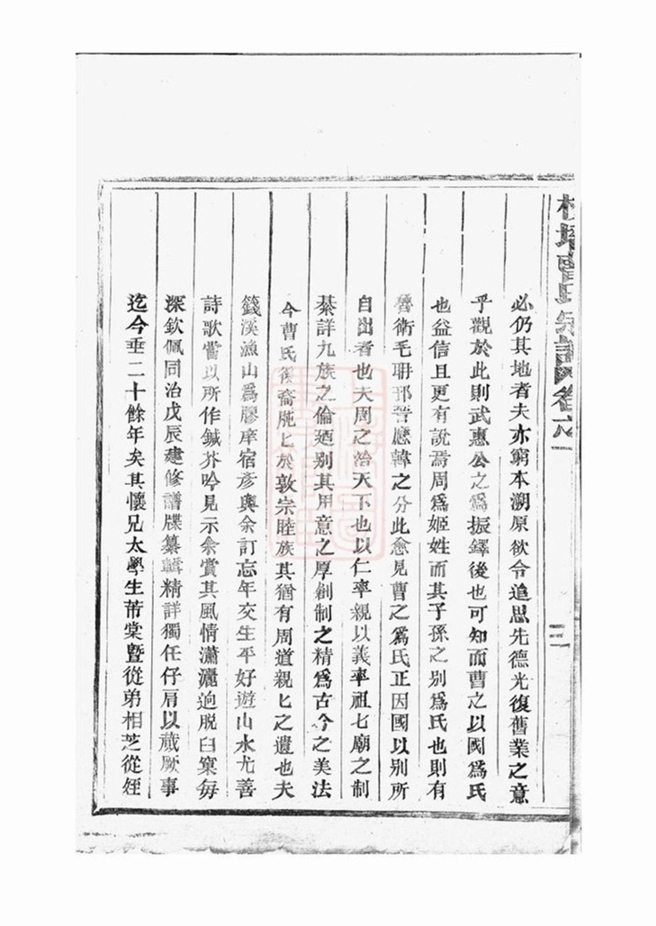 曹氏宗譜 卷之
必仍其地者夫亦窮本溯原欲令追思先德光復舊業之意
乎觀於此則武惠公之爲振鐸後也可知而曹之以國爲氏
也益信且更有說焉周爲姬姓而其子孫之別爲氏也則有
魯衛毛聃邘晉應韓之分此愈見曹之爲氏正因國以別所
自出者也夫周之治天下也以仁率親以義率祖七廟之制
綦詳九族之倫廼別其用意之厚創制之精爲古今之美法
今曹氏後裔胐匕於敦宗睦族其猶有周道親匕之遺也夫
籛溪漁山爲膠庠宿彥與余訂忘年交生平好遊山水尤善
詩歌嘗以所作鍼芥吟見示余賞其風情瀟灑迥脫臼窠每
深欽佩同治戊辰建修譜牒纂輯精詳獨任仔肩以蕆厥事
迄今垂二十餘年矣其懷兄太學生芾棠暨從弟相芝從姪